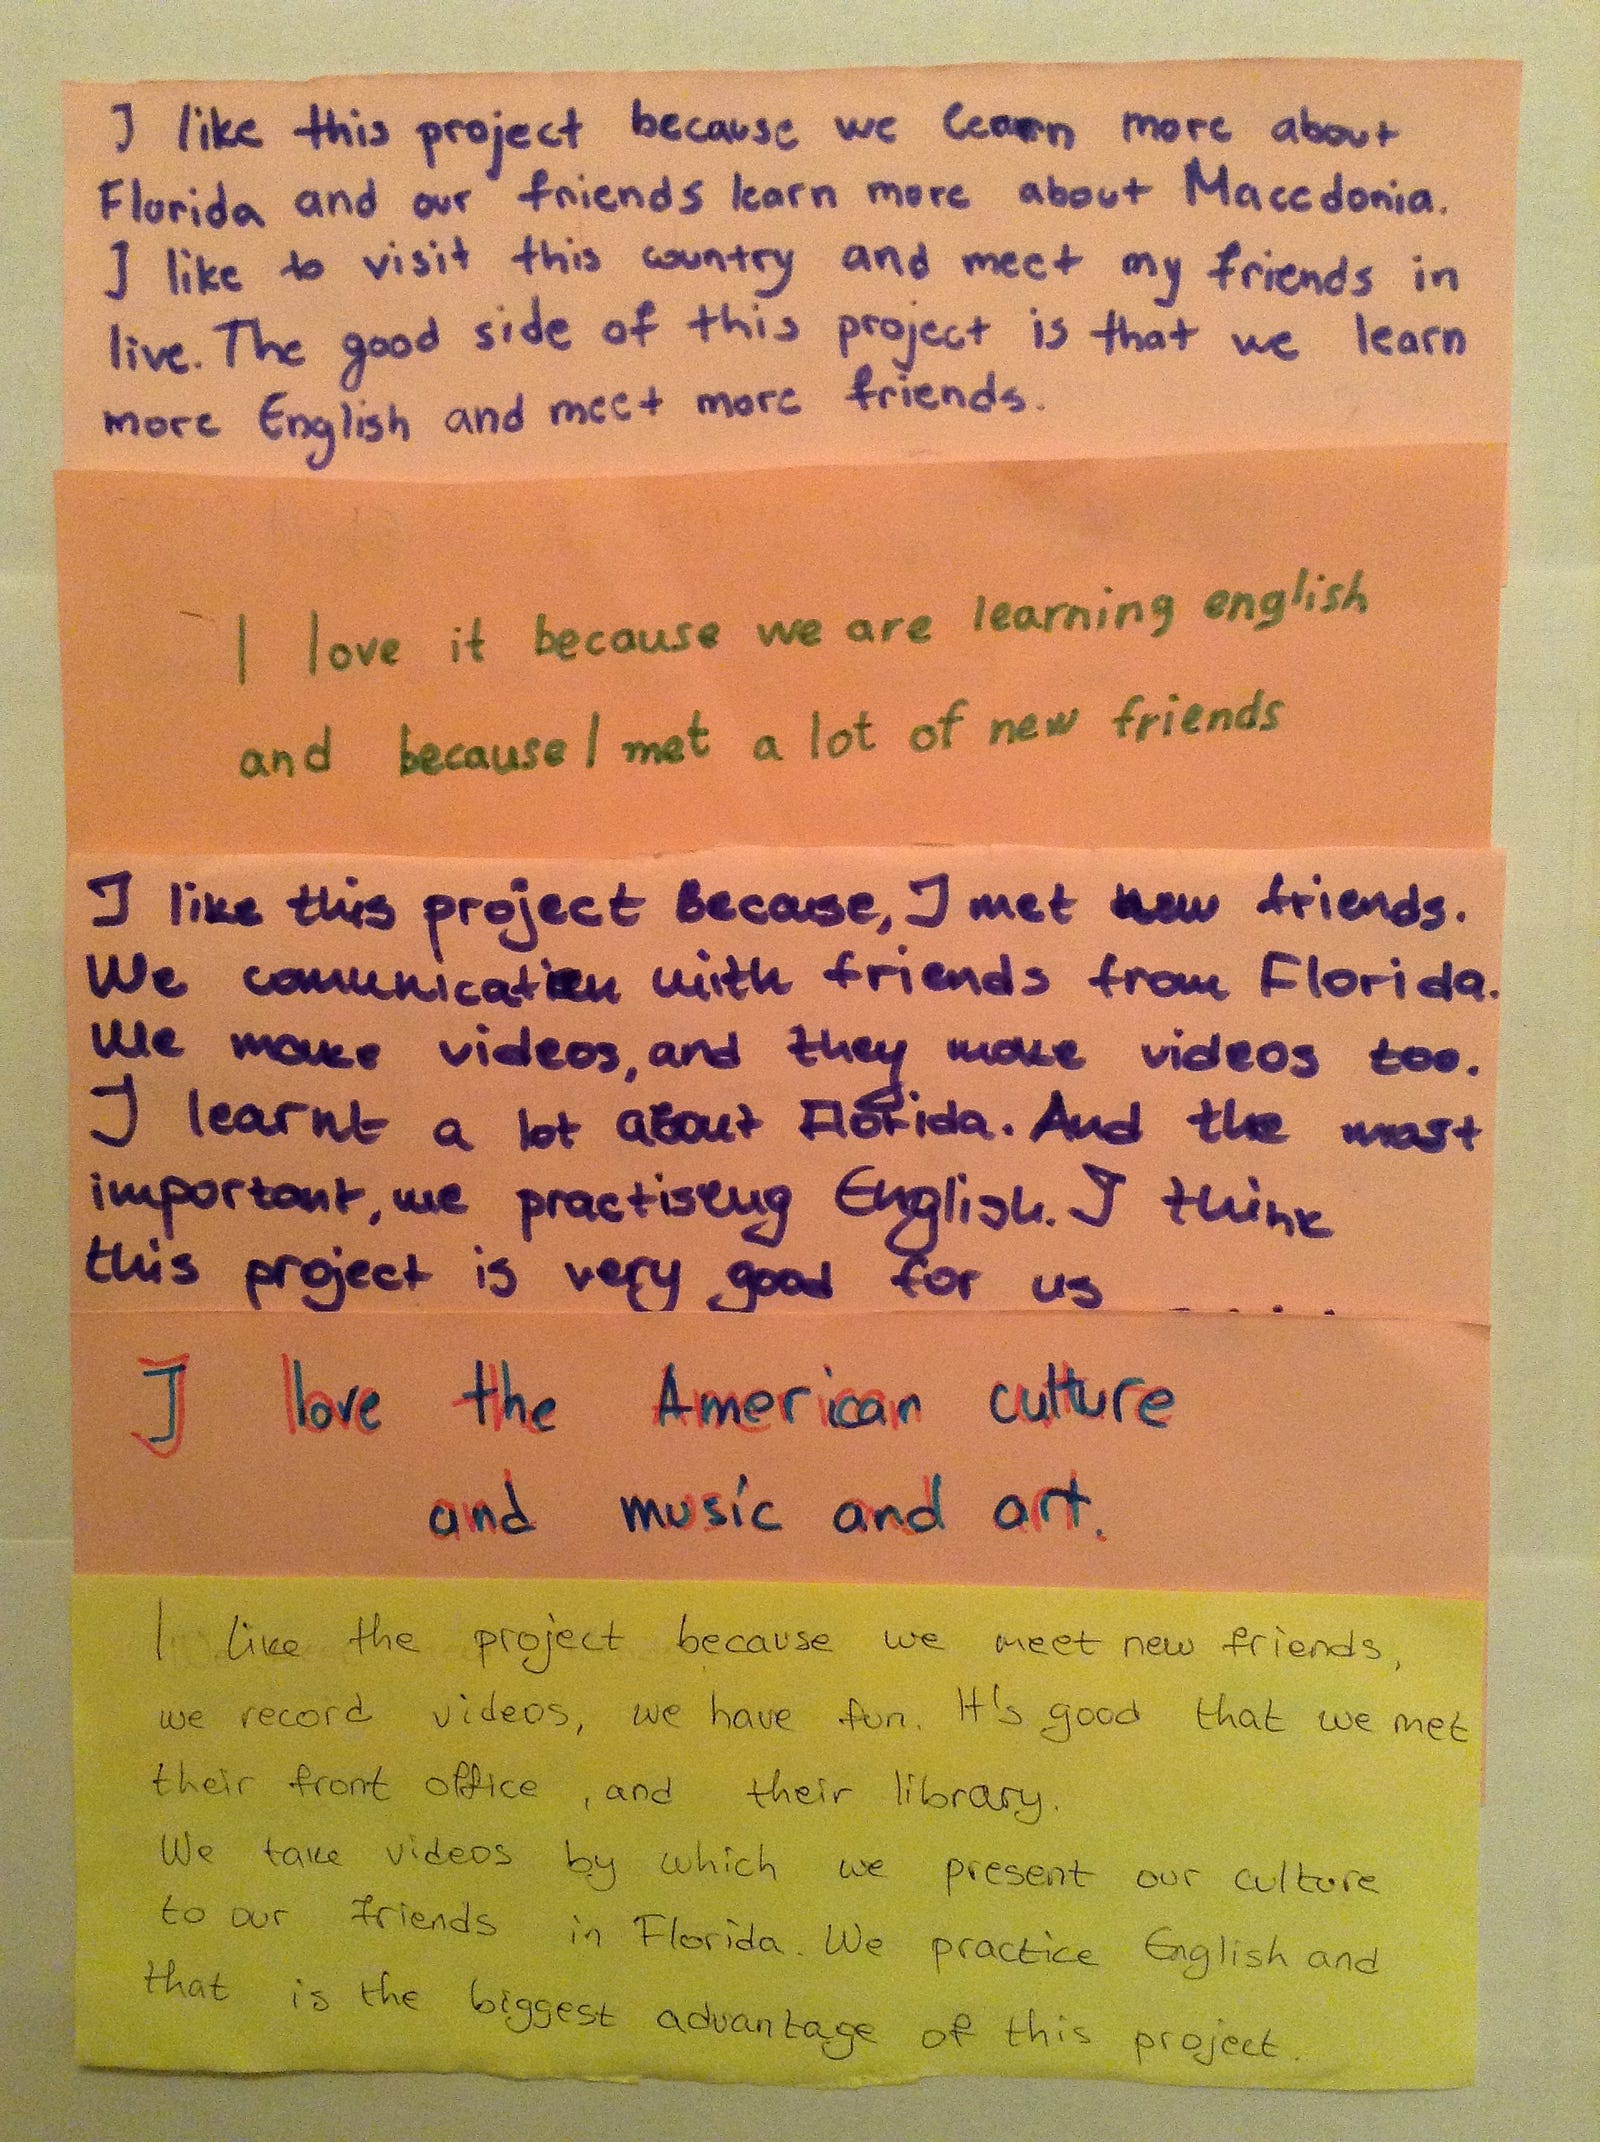 I like this project because we learn more about
Florida and our friends learn more about Macedonia.
I like to visit this country and meet my friends in
live. The good side of this project is that we learn
more English and meet more friends.
I love it because we are learning english
and because I met a lot of new friends
I like this project Because, I met new friends.
We comunication with friends from Florida.
We make videos, and they make videos too.
I learnt a lot about Florida. And the most
important, we practiseng English. I think
this project is very good for us
I love the American culture
and music and art.
I like the project because we meet new friends,
we record videos, we have fun. It's good that we met
their front office, and their library.
We take videos by which we present our culture
to our friends in Florida. We practice English and
that is the biggest advantage of this project.